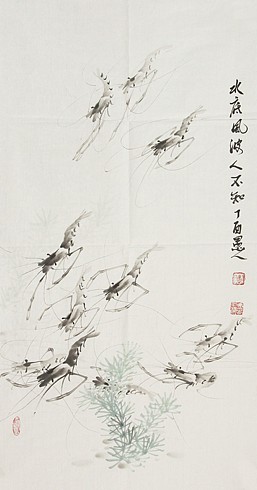 水底风波人不知丁酉墨人